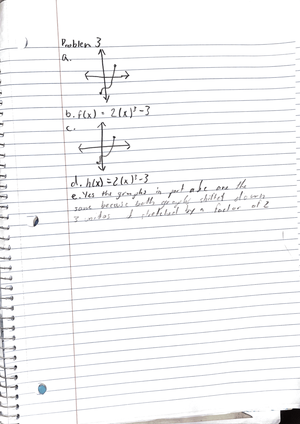 Problem 3
a.
b. f(x) = 2(x)³-3
c.
d. h(x) = 2(x)³-3
e. Yes the graphs in part a & c are the
same because both graphs shifted down
3 units & stretched by a factor of 2